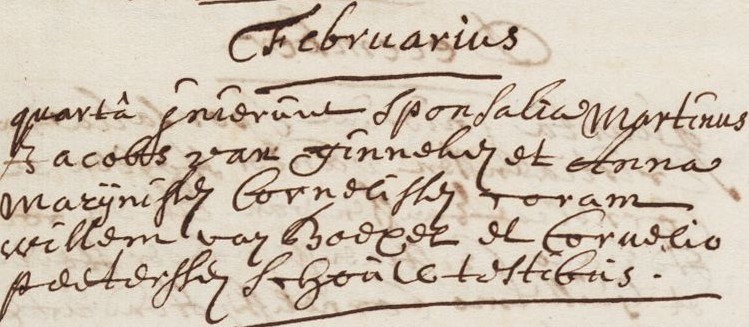 Februarius
quartâ inierunt sponsalia Martinus
Jacobs van Ginneken et Anna
Marijnissen Cornelissen coram
willem van Boexel et Cornelio
peeterssen schoûle testibus.